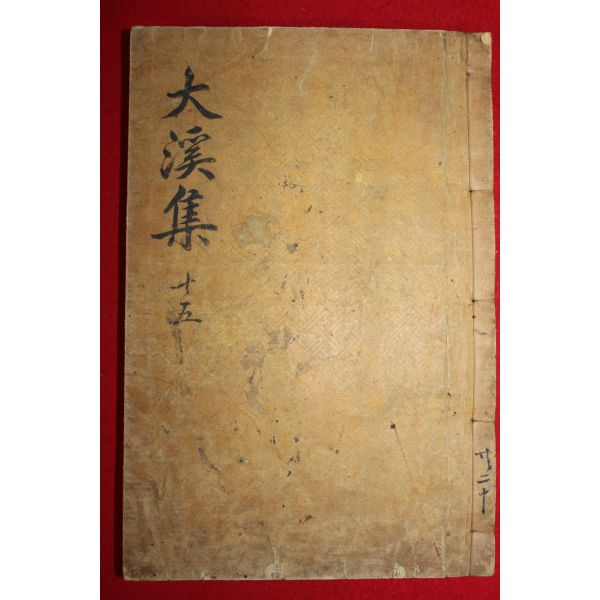 大溪集
十五
共二十